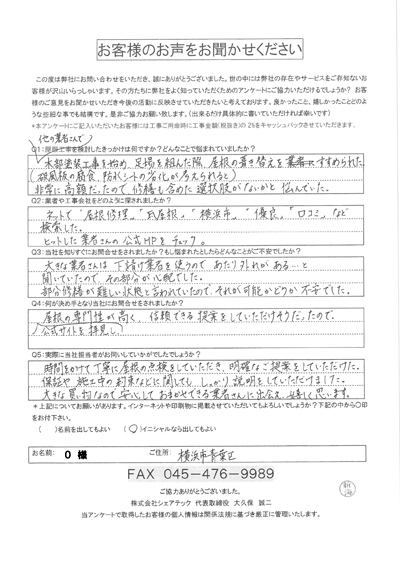 お客様のお声をお聞かせください
この度は弊社にお問い合わせをいただき、誠にありがとうございました。世の中には弊社の存在やサービスをご存知ないお
客様が沢山いらっしゃいます。その方たちに弊社をよく知っていただくためのアンケートにご協力いただけるでしょうか？お客
様のご意見をお聞かせいただき今後の活動に反映させていただきたいと考えております。良かったこと、嬉しかったことどのよ
うな些細な事でも結構です。是非ご協力お願い致します。（出来るだけ具体的に書いていただければ幸いです）
*本アンケートにご記入いただいたお客様には工事ご用命時に工事金額（税抜き）の2%をキャッシュバックさせていただきます。
他の業者さんで
Q1:屋根工事を検討したきっかけは何ですか？どんなことで悩まれていましたか？
外部塗装工事を始め、足場を組んだ際、屋根の葺き替えをすすめられた
（破風板の腐食、防水シートの劣化が考えられると）
非常に高額だったので修繕も含めた選択肢がないかと悩んでいた。
Q2:業者や工事会社をどのように探されましたか？
ネットで「屋根修理」「瓦屋根」「横浜市」「優良」「口コミ」など
検索した。
ヒットした業者さんの公式HPをチェック。
Q3:当社を知りすぐにお問合せをされましたか？もし悩まれたとしたらどんなことがご不安でしたか？
大きな業者さんは下請け業者を使うのであたり外れがある…と
聞いていたので、その部分が心配でした。
部分修繕が難しい状態と言われていたので、それが可能かどうか不安でした。
Q4:何が決め手となり当社にお問合せをされましたか？
屋根の専門性が高く、信頼できる提案をしていただけそうだったので。
公式サイトを拝見し
Q5:実際に当社担当者がお伺いしていかがでしたでしょうか？
時間をかけて丁寧に屋根の点検をしていただき、明確なご提案をしていただけた。
保証や施工中の約束などに関してもしっかり説明をしていただけました。
大きな買い物なので安心しておまかせできる業者さんに出会え、と思います。
*上記についてお願いがあります。インターネットや印刷物に掲載させていただいてもよろしいでしょうか？下記の中から○印
をお付け下さい。
（　）名前を出してもよい　（○）イニシャルなら出してもよい
お名前：　O 様　ご住所：　横浜市青葉区
FAX 045-476-9989
ご協力ありがとうございました。
株式会社シェアテック 代表取締役 大久保 誠二
当アンケートで取得したお客様の個人情報は関係法規に基づき厳正に管理いたします。